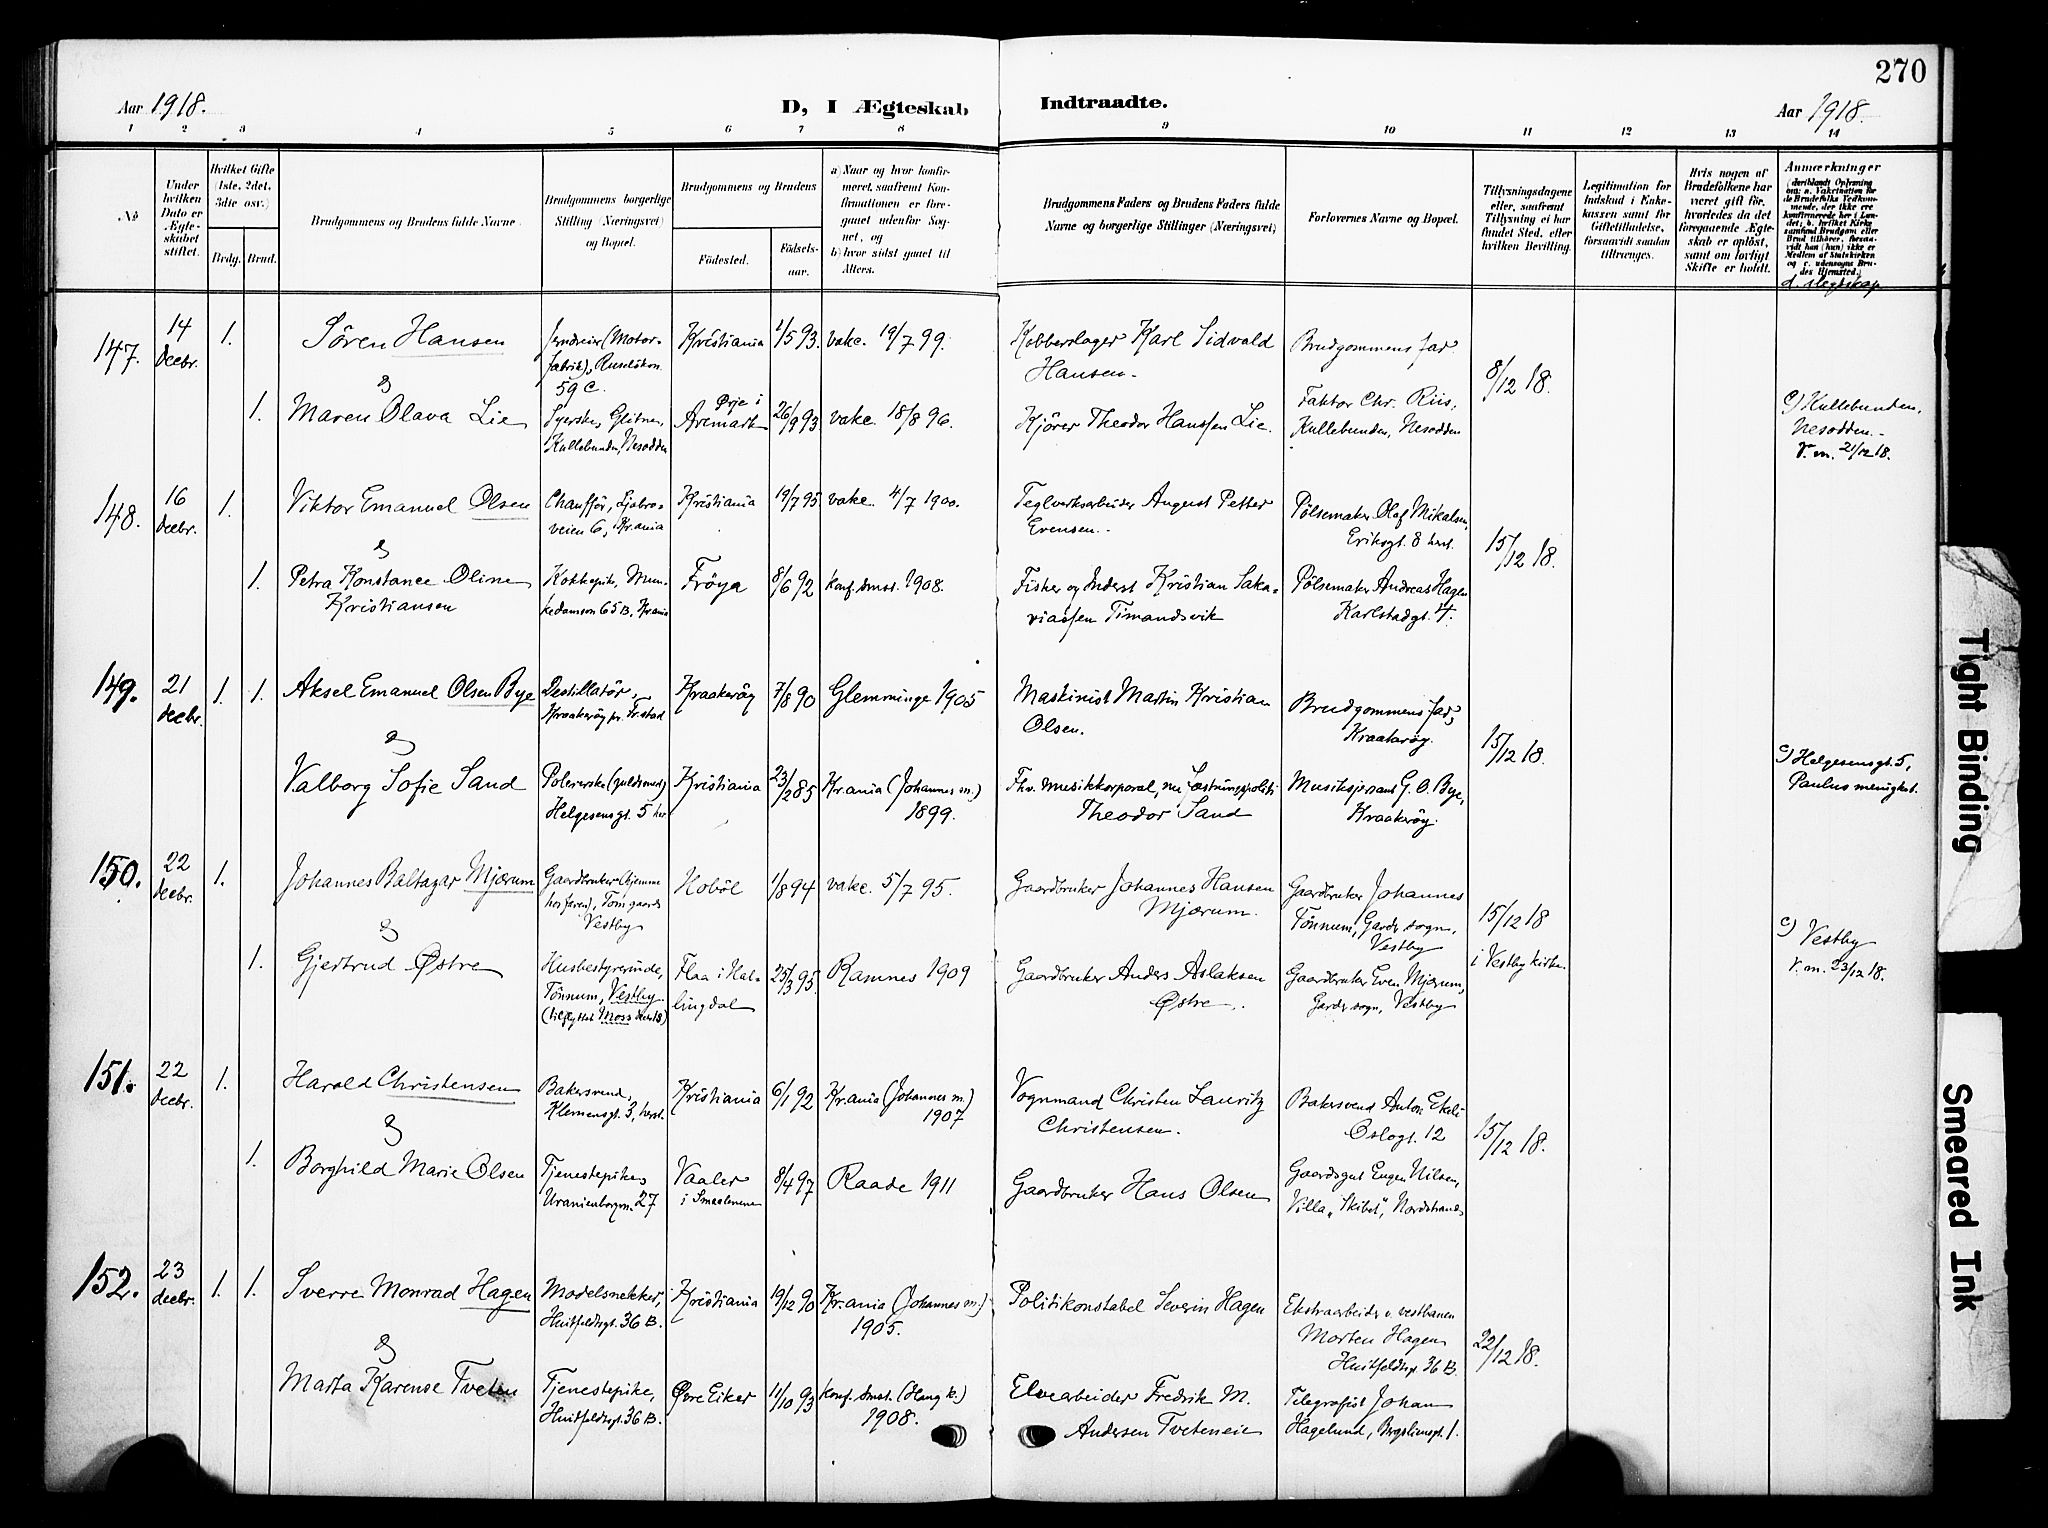 270
Aar 1918.
D, I Ægteskab Indtraadte.
Aar 1918.
1 2 3 4 5 6 7 8 9 10 11 12 13 14
No
Under hvilken Dato er Ægteskabet stiftet.
Hvilket Gifte (1ste, 2det, 3die osv.)
Brdg. Brud.
Brudgommens og Brudens fulde Navne.
Brudgommens borgerlige Stilling (Næringsvei) og Bopæl.
Brudgommens og Brudens
Födested.
Födselsaar.
a) Naar og hvor konfirmeret, saafremt Konfirmationen er foregaaet udenfor Sognet, og
b) hvor sidst gaaet til Alters.
Brudgommens Faders og Brudens Faders fulde Navne og borgerlige Stillinger (Næringsvei)
Forlovernes Navne og Bopæl.
Tillysningsdagene eller, saafremt Tillysning ei har fundet Sted, efter hvilken Bevilling.
Legitimation for Indskud i Enkekassen samt for Giftetilladelse, forsaavidt saadan tiltrænges.
Hvis nogen af Brudefolkene har været gift för, hvorledes da det foregaaende Ægteskab er oplöst, samt om lovligt Skifte er holdt.
Anmærkninger
d. slegtskap
147.
14 Decbr.
1.
Søren Hansen
(Motorfabrik),
59 C.
Kristiania
1/5 93.
vakc. 19/7 99.
Kobberslager Karl Sidvald
Hansen.
Brudgommens far
8/12 18.
&
1.
Maren Olava Lie
Syerske, Glitne,
Kullebunden, Nesodden
Ørje i
Aremark
26/9 93
vakc. 18/8 96.
Kjører Theodor Hanssen Lie.
Faktor Chr. Riis,
Kullebunden, Nesodden
c) Kullebunden,
Nesodden.
V. m. 21/12 18.
148.
16 Decbr.
1.
Viktor Emanuel Olsen
Chauffør, Ljabroveien 6, Kr.ania
Kristiania
19/7 95
vakc. 4/7 1900.
Teglverksarbeider August Petter
Evensen.
Pølsemaker Olaf Mikalsen,
Eriksgt. 8 herst.
15/12 18.
&
1.
Petra Konstance Oline
Kristiansen
Kokkepike, Munkedamsvn 65 B, Kr.ania
Frøya
8/6 92
konf. dmst. 1908.
Fisker og Inderst Kristian Sakariassen Timandsvik
Pølsemaker Andreas Hagen
Karlstadgt. 4.
149.
21 decbr.
1. 1.
Aksel Emanuel Olsen Bye
Destillatør,
Kraakerøy pr. Fr.stad
Kraakerøy
7/8 90
Glemminge 1905
Maskinist Martin Kristian
Olsen.
Brudgommens far,
Kraakerøy.
15/12 18.
&
Valborg Sofie Sand
Polererske (guldsmed)
Helgesensgt. 5 her
Kristiania
23/2 85
Kr.ania (Johannes m.)
1899.
Fhv. musikkorporal, nu Fæstningspoliti
Theodor Sand
Musiksjersant G. O. Bye,
Kraakerøy.
c) Helgesensgt. 5,
Paulus menighet.
150.
22 Decbr.
1.
Johannes Baltazar Mjærum
Gaardbruker (hjemme
hos faren), Tomgaard
Vestby
Hobøl
1/8 94
vakc. 5/7 95.
Gaardbruker Johannes Hansen
Mjærum.
Gaardbruker Johannes
Tønnum, Garder sogn,
Vestby
15/12 18
i Vestby kirke.
&
1.
Gjertrud Østre
Husbestyrerinde,
Tønnum, Vestby
(tilflyttet Moss decbr 18)
Flaa i Hallingdal
25/3 95.
Ramnes 1909
Gaardbruker Anders Aslaksen
Østre.
Gaardbruker Even Mjærum,
Garder sogn, Vestby
c) Vestby
V. m. 23/12 18.
151.
22 Decbr.
1.
Harald Christensen
Bakersvend,
Klemensgt. 3, herst.
Kristiania
6/1 92
Kr.ania (Johannes m.)
1907
Vognmand Christen Lauritz
Christensen.
Bakersvend Anton Ekeli
Oslogt. 12
15/12 18.
&
1.
Borghild Marie Olsen
Tjenestepike,
Uranienborgvn. 27
Vaaler
i Smaalenene
8/4 97
Raade 1911
Gaardbruker Hans Olsen
Gaardsgut Eugen Nilsen,
Villa "Skibet", Nordstrand
152.
23 decbr.
1. 1.
Sverre Monrad Hagen
Modelsnekker,
Huitfeldtsgt. 36 B.
Kristiania
19/12 90
Kr.ania (Johannes m.)
1905.
Politikonstabel Severin Hagen
Ekstraarbeider v. vestbanen
Morten Hagen
Huitfeldtsgt. 36 B.
22/12 18.
&
Marta Karense Tveten
Tjenestepike,
Huitfeldtsgt. 36 B.
Øvre Eiker
11/10 93
konf. dmst. (Haug k.)
1908.
Elvearbeider Fredrik M.
Andersen Tveteneie
Telegrafist Johan
Hagelund, Bergsliensgt. 1.
Tight Binding
Smeared Ink